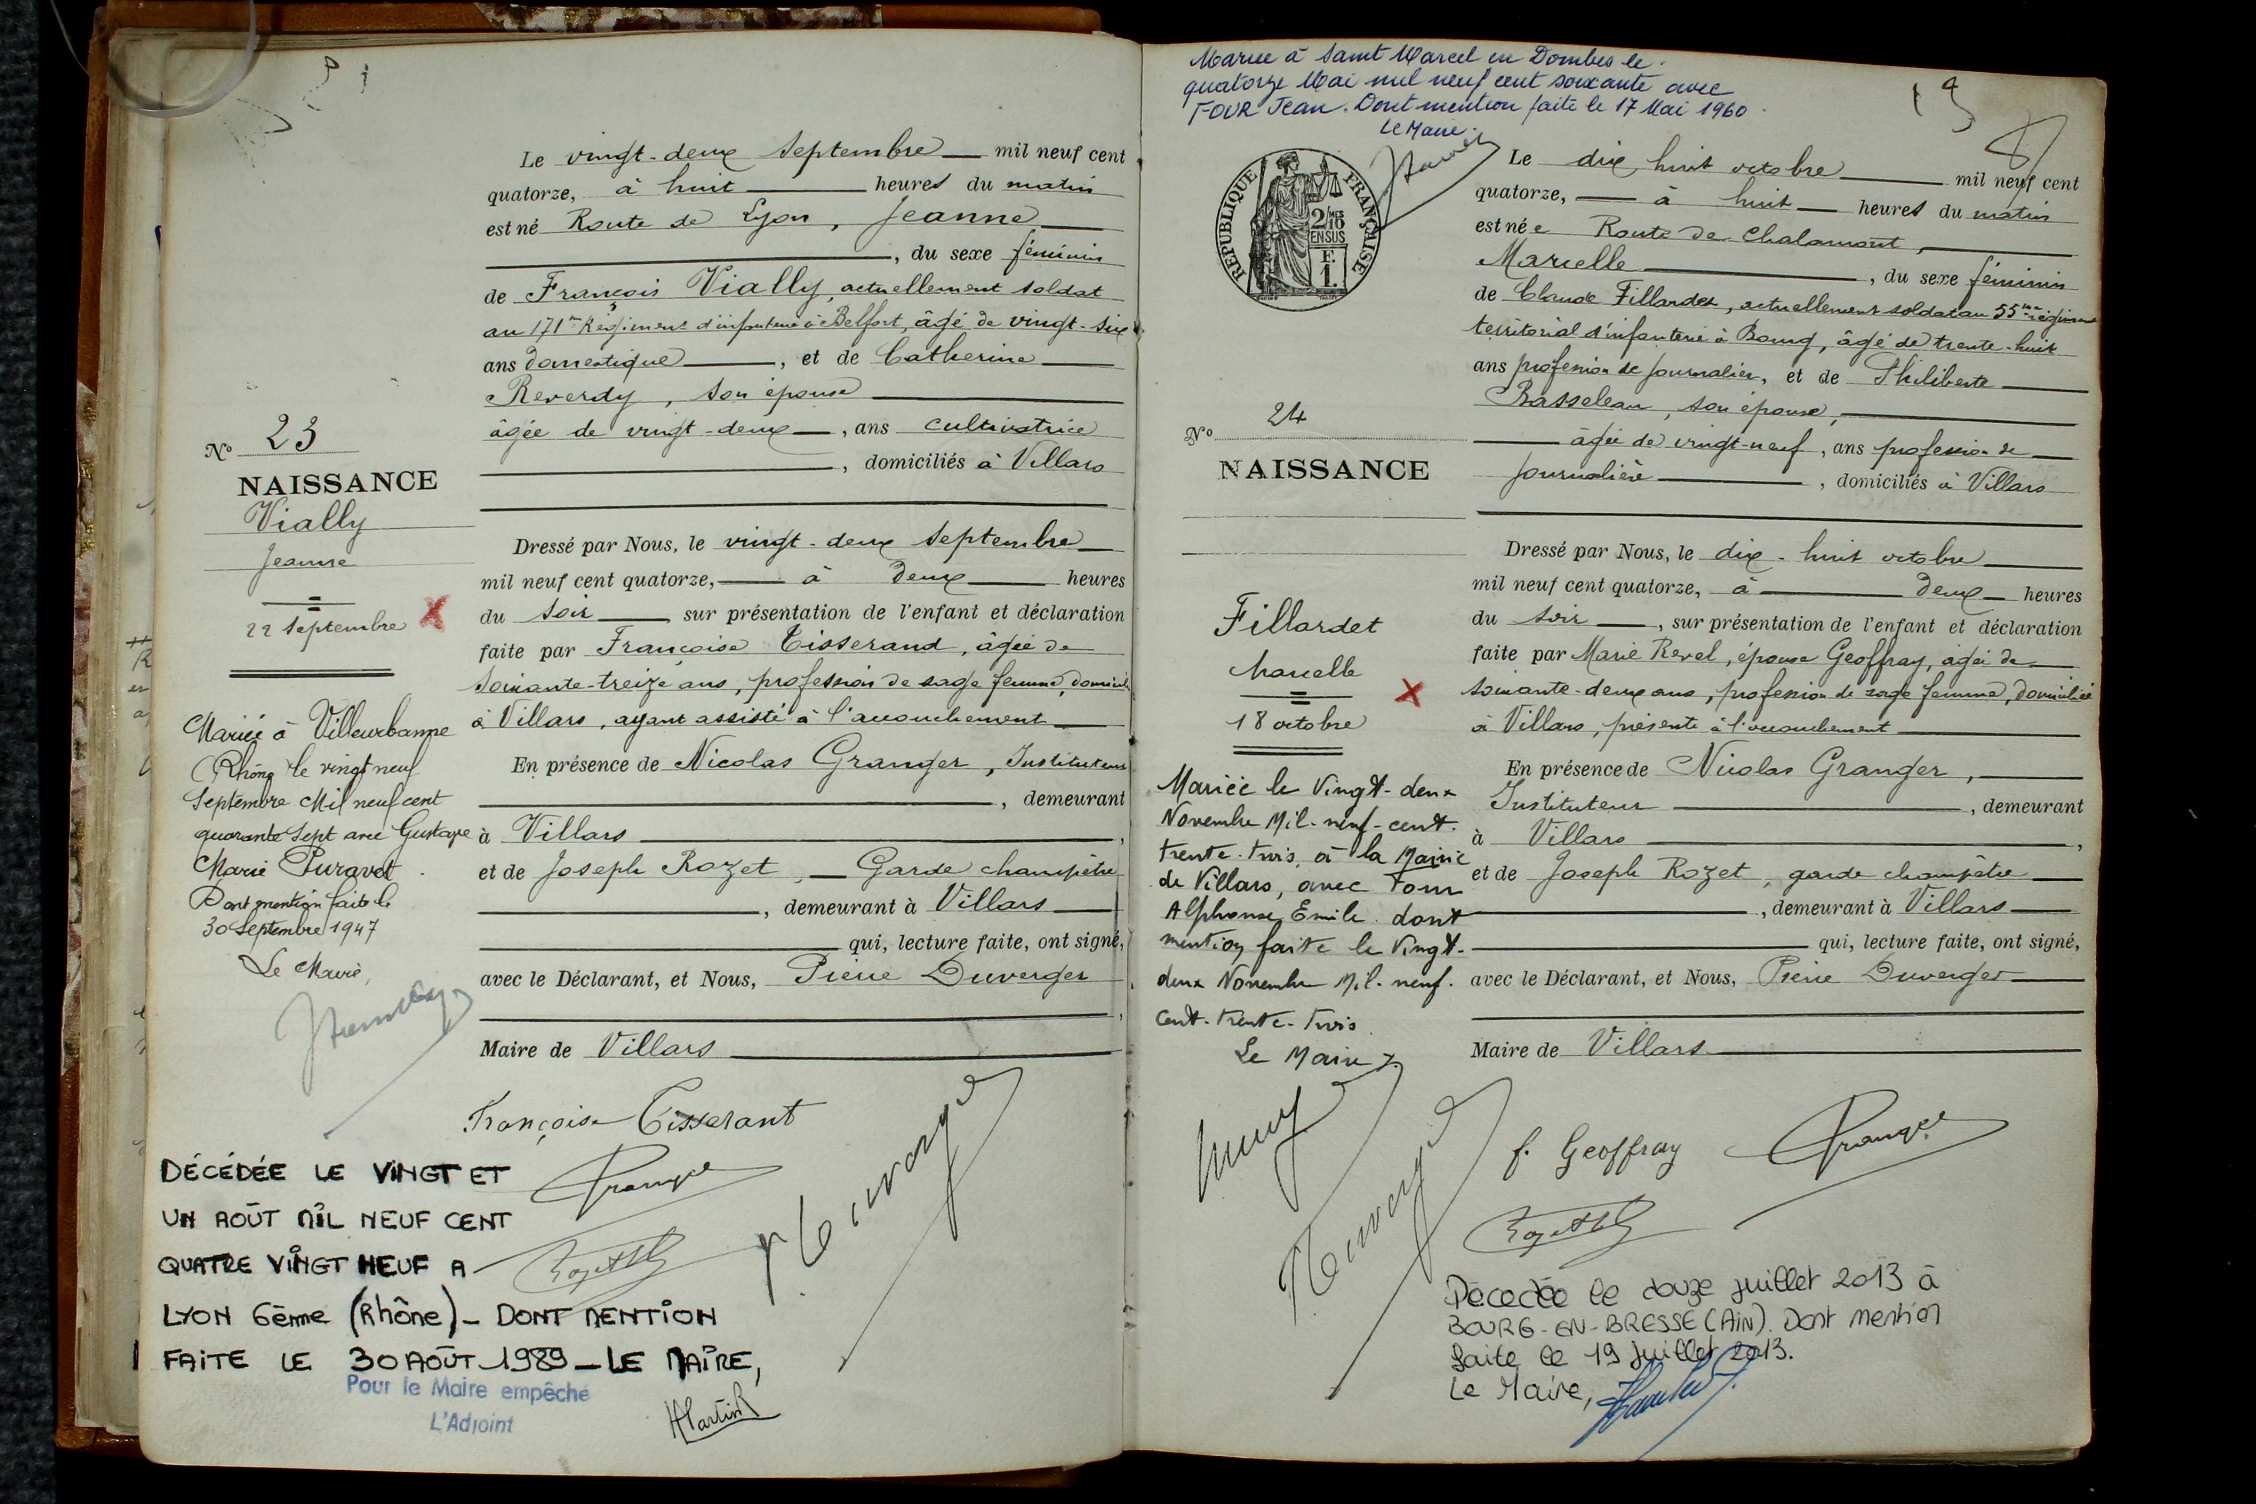 Le vingt-deux septembre mil neuf cent
quatorze, à huit heures du matin
est né Route de Lyon, Jeanne
, du sexe féminin
de François Vially, actuellement soldat
au 171me Régiment d'infanterie à Belfort, âgé de vingt-six
ans domestique, et de Catherine
Reverdy, son épouse
âgée de vingt-deux, ans cultivatrice
, domiciliés à Villars
No 23
NAISSANCE
Vially
Jeanne
22 septembre
Dressé par Nous, le vingt-deux septembre
mil neuf cent quatorze, à deux heures
du soir sur présentation de l'enfant et déclaration
faite par Françoise Tisserand, âgée de
soixante-treize ans, profession de sage femme, domiciliée
à Villars, ayant assisté à l'accouchement
En présence de Nicolas Granger, Instituteur
, demeurant
à Villars,
et de Joseph Rozet, Garde champêtre
, demeurant à Villars
qui, lecture faite, ont signé,
avec le Déclarant, et Nous, Pierre Duverger
,
Maire de Villars
Mariée à Villeurbanne
(Rhône) le vingt neuf
Septembre Mil neuf cent
quarante sept avec Gustave
Marie Puravet.
Dont mention faite le
30 Septembre 1947
Le Maire,
Françoise Tisserant
Granger
DÉCÉDÉE LE VINGT ET
UN AOÛT MIL NEUF CENT
QUATRE VINGT NEUF A
LYON 6ème (Rhône)_ DONT MENTION
FAITE LE 30 AOÛT 1989_LE MAIRE,
Pour le Maire empêché
L'Adjoint
HMartin
Mariée à Saint Marcel en Dombes le
quatorze Mai mil neuf cent soixante avec
FOUR Jean. Dont mention faite le 17 Mai 1960.
Le Maire.
RÉPUBLIQUE FRANÇAISE
2/10MES
EN SUS
F.
1.
Le dix huit octobre mil neuf cent
quatorze, à huit heures du matin
est née Route de Chalamont,
Marcelle, du sexe féminin
de Claude Fillardet, actuellement soldat au 55me régiment
territorial d'infanterie à Bourg, âgé de trente-huit
ans profession de journalier, et de Philiberte
Basseleau, son épouse,
âgée de vingt-neuf, ans profession de
journalière, domiciliés à Villars
No 24
NAISSANCE
Fillardet
Marcelle
18 octobre
Dressé par Nous, le dix-huit octobre
mil neuf cent quatorze, à deux heures
du soir, sur présentation de l'enfant et déclaration
faite par Marie Revel, épouse Geoffray, âgée de
soixante-deux ans, profession de sage femme, domiciliée
à Villars, présente à l'accouchement
En présence de Nicolas Granger,
Instituteur, demeurant
à Villars,
et de Joseph Rozet, garde champêtre
, demeurant à Villars
qui, lecture faite, ont signé,
avec le Déclarant, et Nous, Pierre Duverger
Maire de Villars
Mariée le Vingt-deux
Novembre Mil-neuf-cent-
trente-trois, à la Mairie
de Villars, avec Four
Alphonse Emile dont
mention faite le Vingt-
deux Novembre Mil-neuf-
cent-trente-trois.
Le Maire
f. Geoffray
Granger
Décédée le douze juillet 2013 à
BOURG-EN-BRESSE (AIN). Dont mention
faite le 19 juillet 2013.
Le Maire,